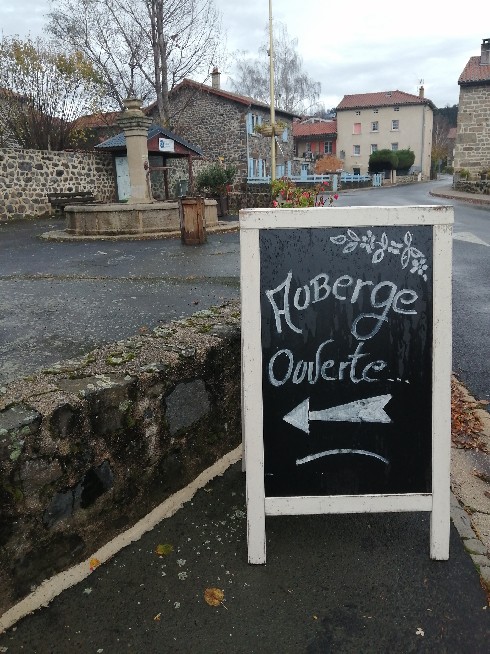 Auberge
Ouverte...